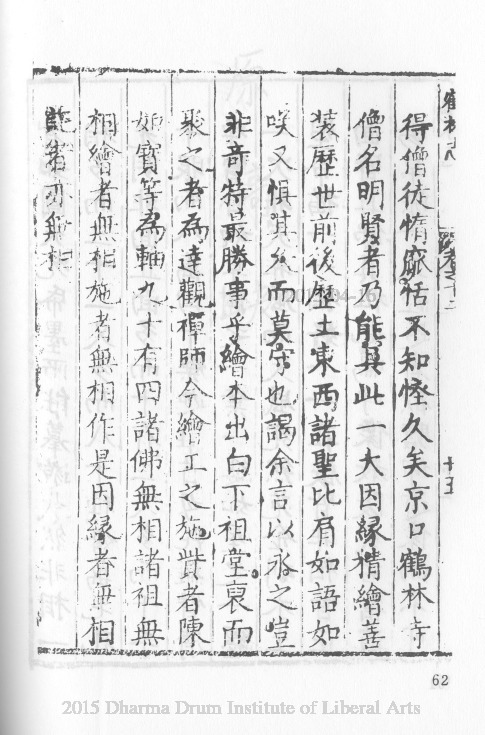 得僧徒惰靡恬不知怪久矣京口鶴林寺
僧名明賢者乃能具此一大因緣精繪善
裝歷世前後歷土東西諸聖比肩如語如
咲又懼其久而莫守也謁余言以永之豈
非奇特最勝事乎繪本出白下祖堂裒而
聚之者為達觀禪師今繪工之施貲者陳
如寶等為軸九十有四諸佛無相諸祖無
相繪者無相施者無相作是因緣者無相
記者亦無相
62
2015 Dharma Drum Institute of Liberal Arts